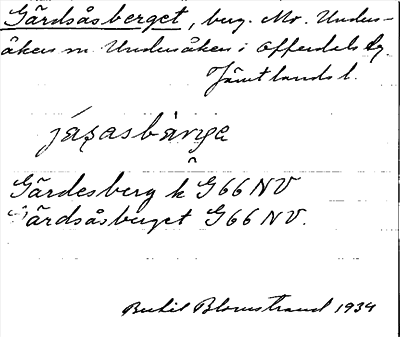 Gärdsåsberget, berg. Mo. Unders-
åkers sn. Undersåkers i Offerdals dg.
Jämtlands l.
jáṣasbä̀rrge
Gärdesberg k G66 NV
Gärdsåsberget G66 NV.
Bertil Blomstrand 1934